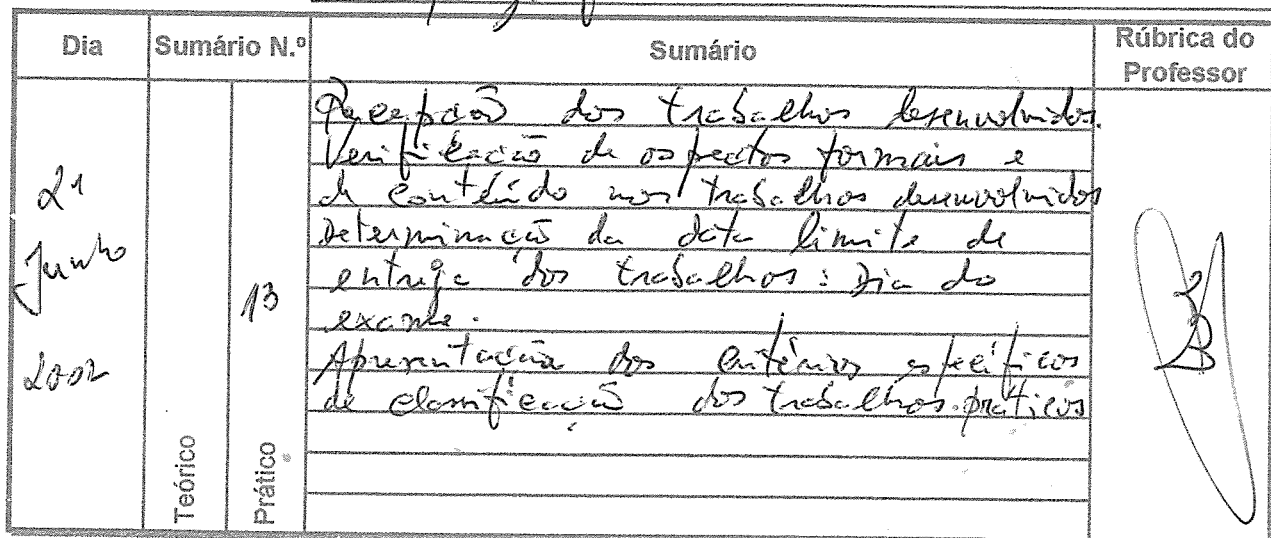 Dia Sumário N.º Sumário Rúbrica do Professor
Recepção dos trabalhos desenvolvidos.
Verificação de aspectos formais e
de conteúdo nos trabalhos desenvolvidos
Determinação da data limite de
entrega dos trabalhos: Dia do
exame.
Apresentação dos critérios específicos
de classificação dos trabalhos práticos
21
Junho
2002
13
Teórico
Prático